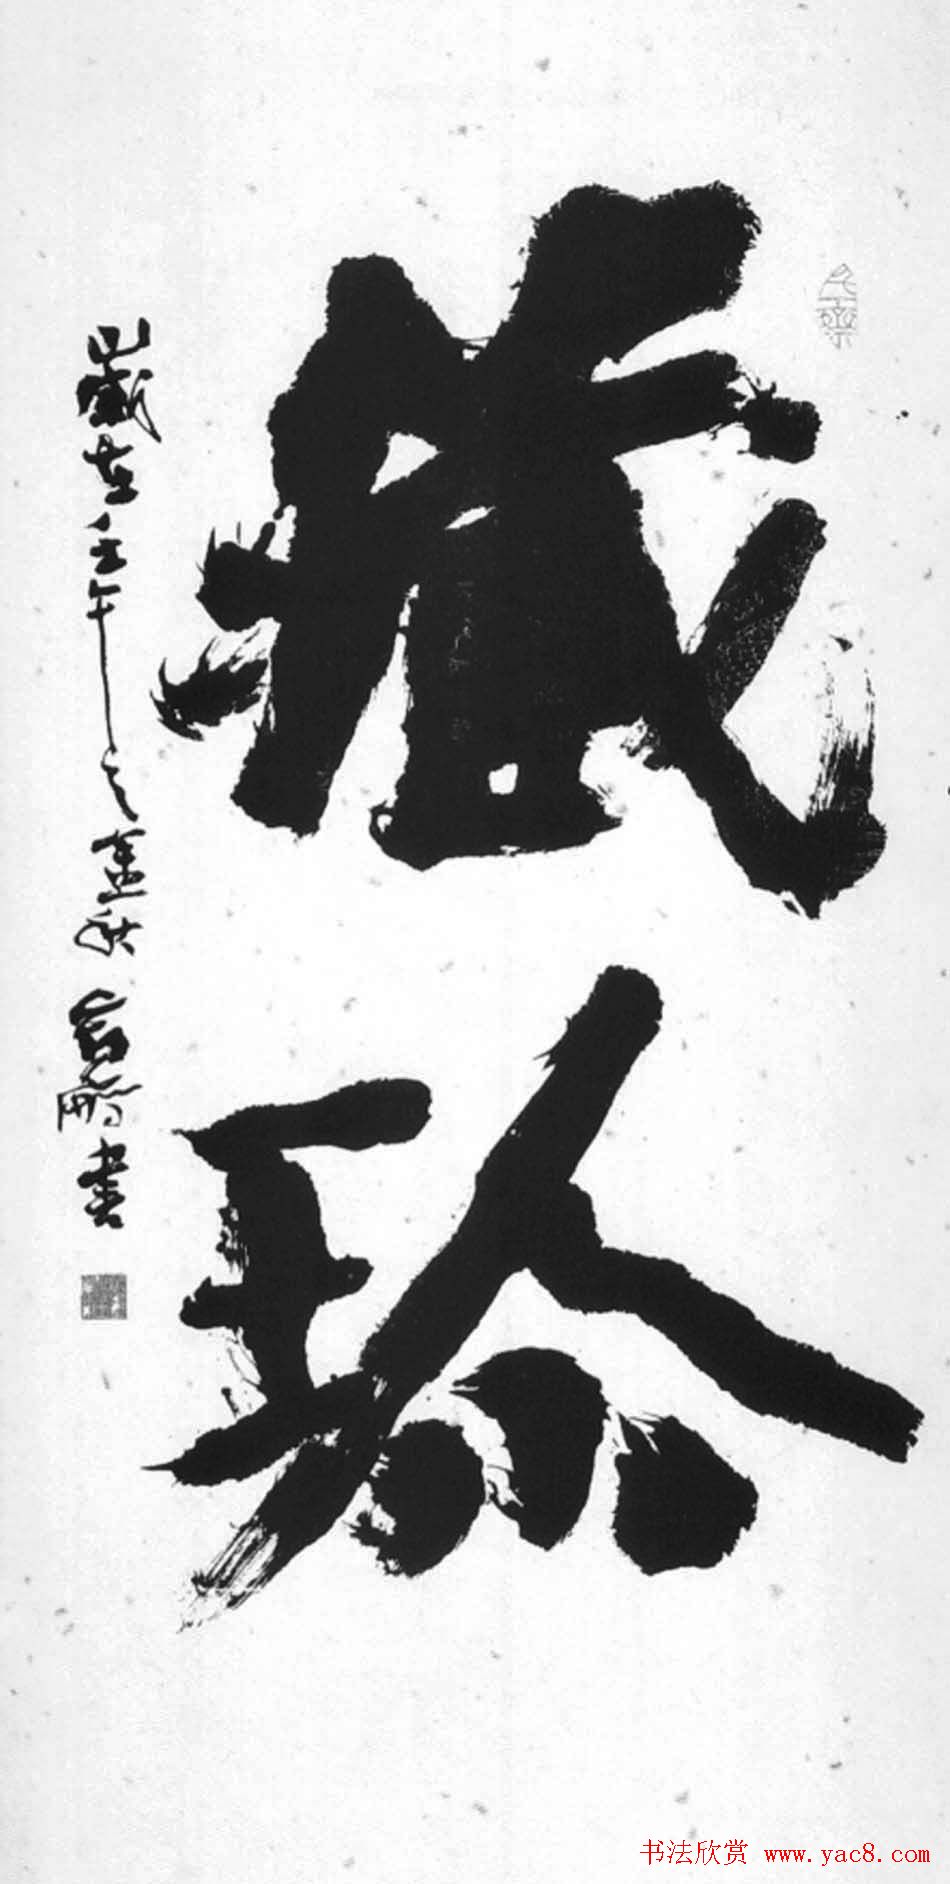 藏珍
歲在壬午之秋鵬書
书法欣赏 www.yac8.com